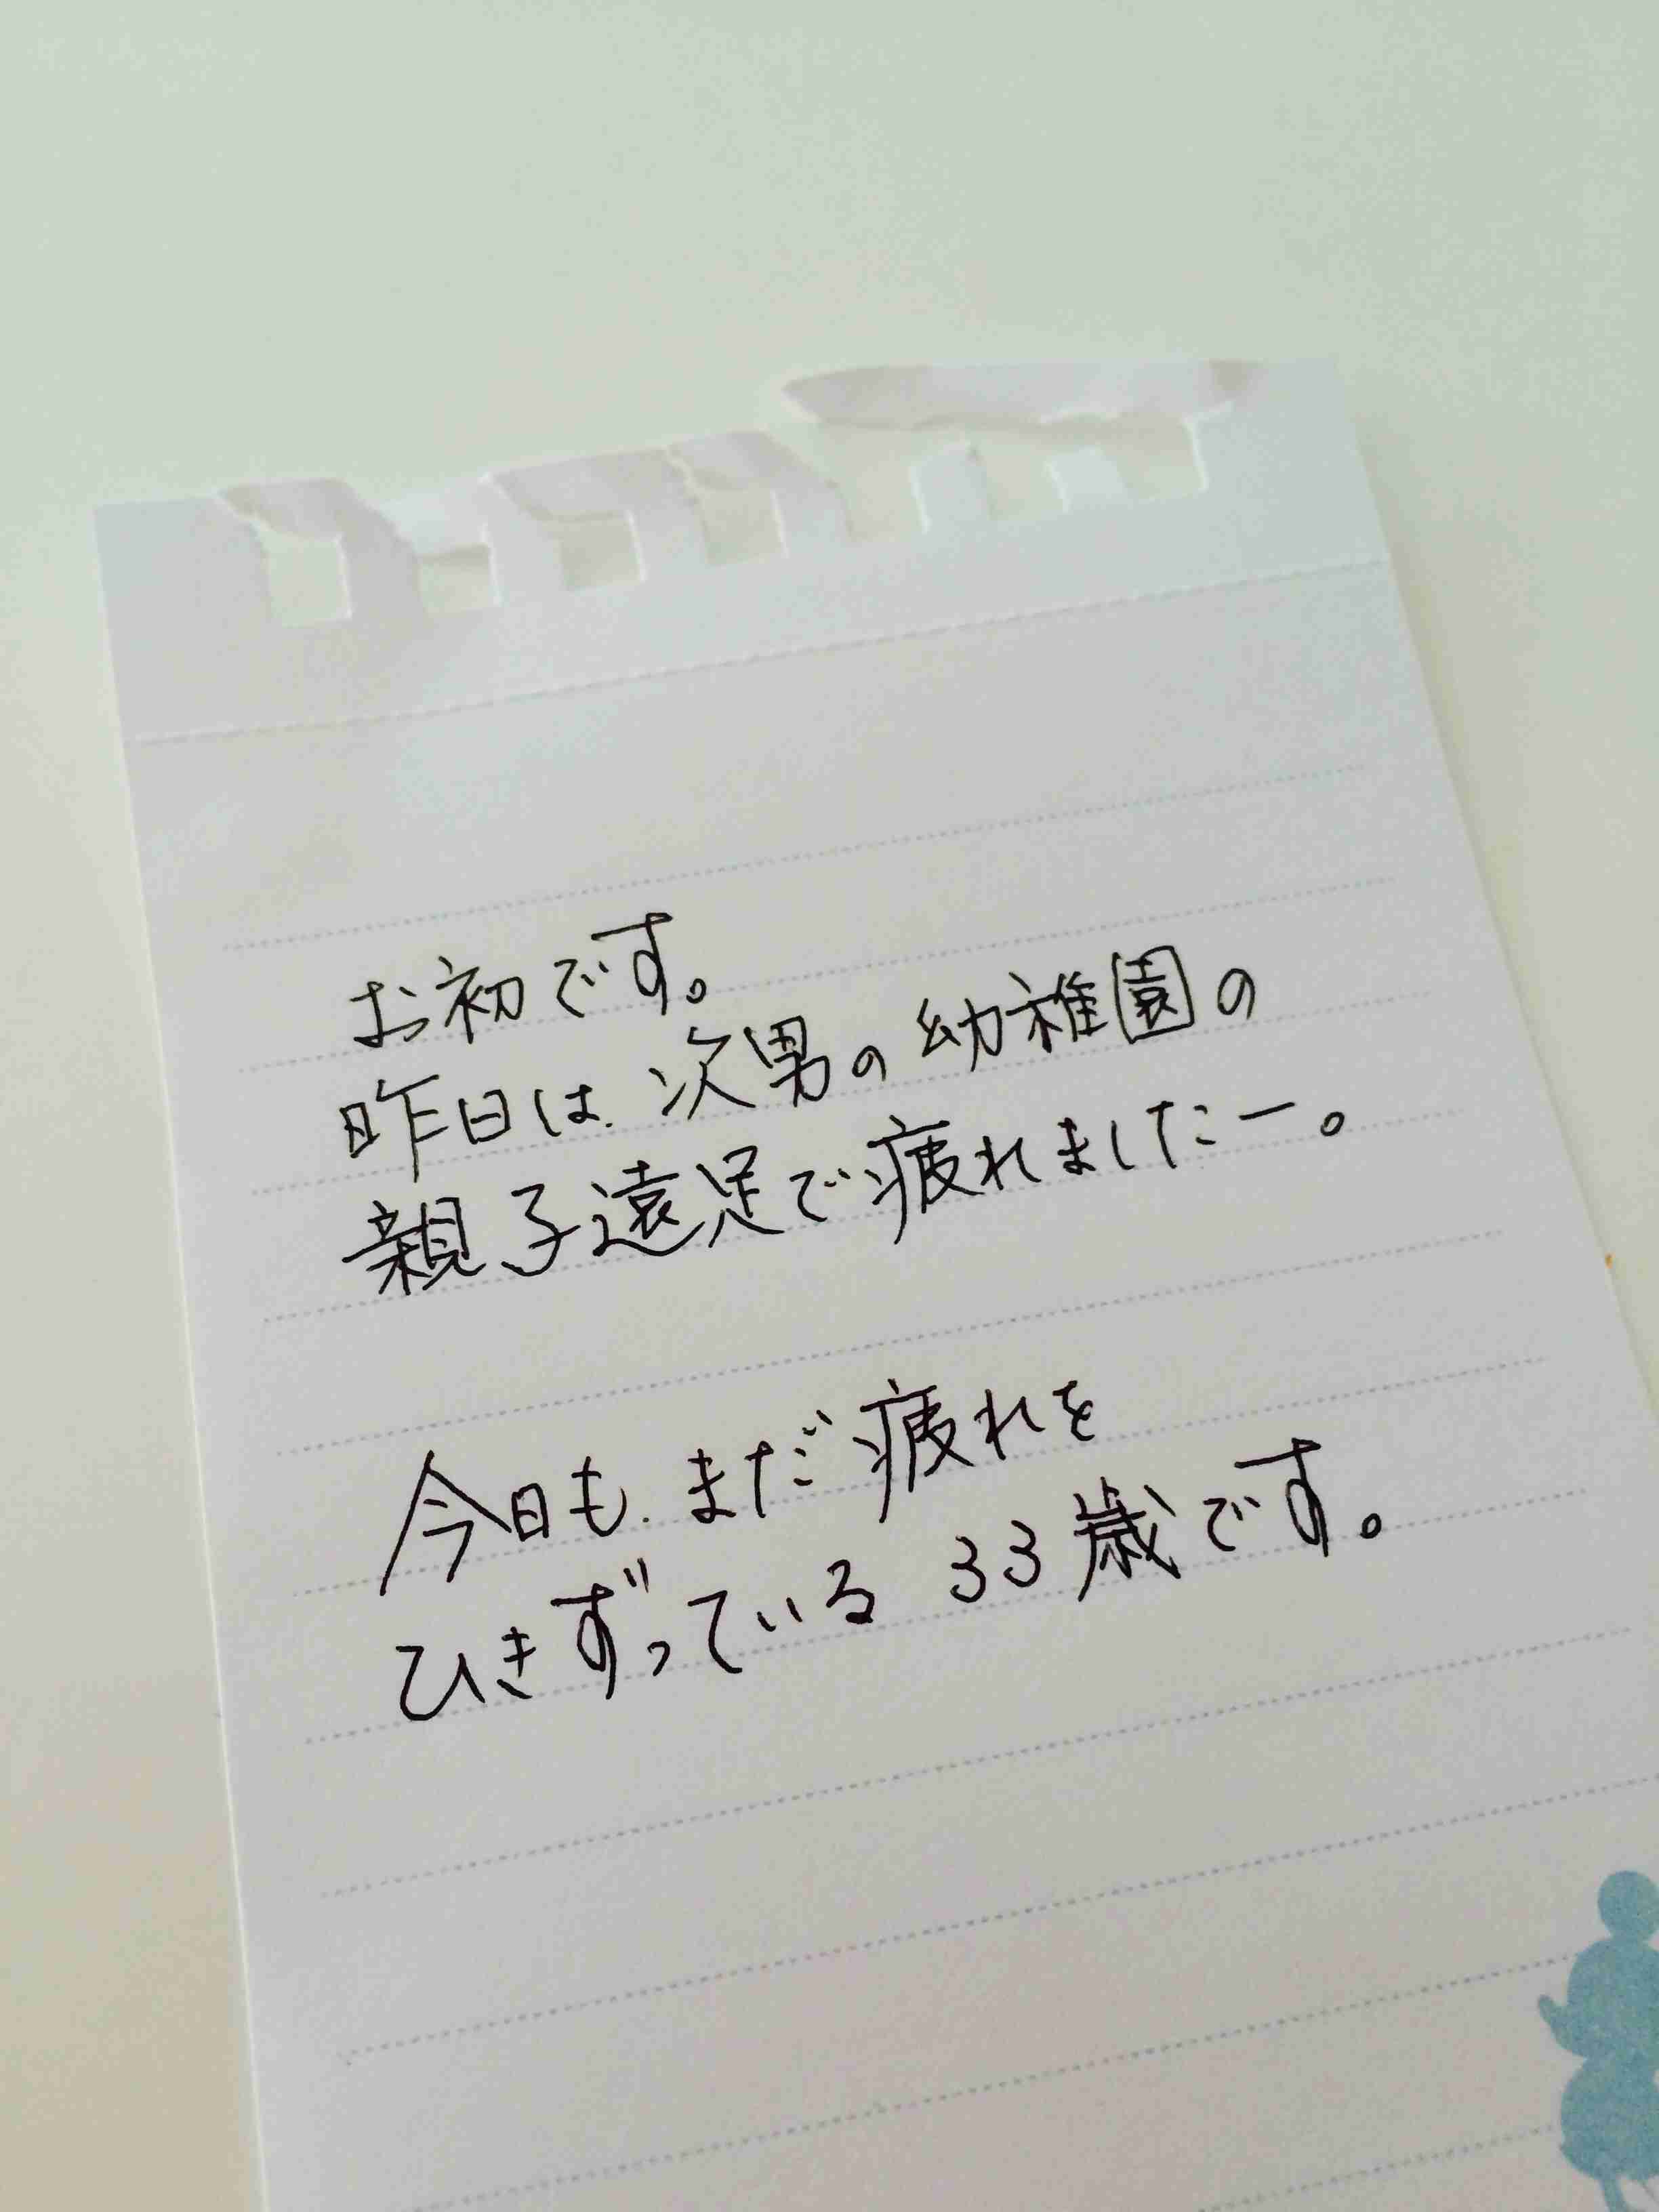 お初です。
昨日は、次男の幼稚園の
親子遠足で疲れましたー。
今日も、まだ疲れを
ひきずっている33歳です。